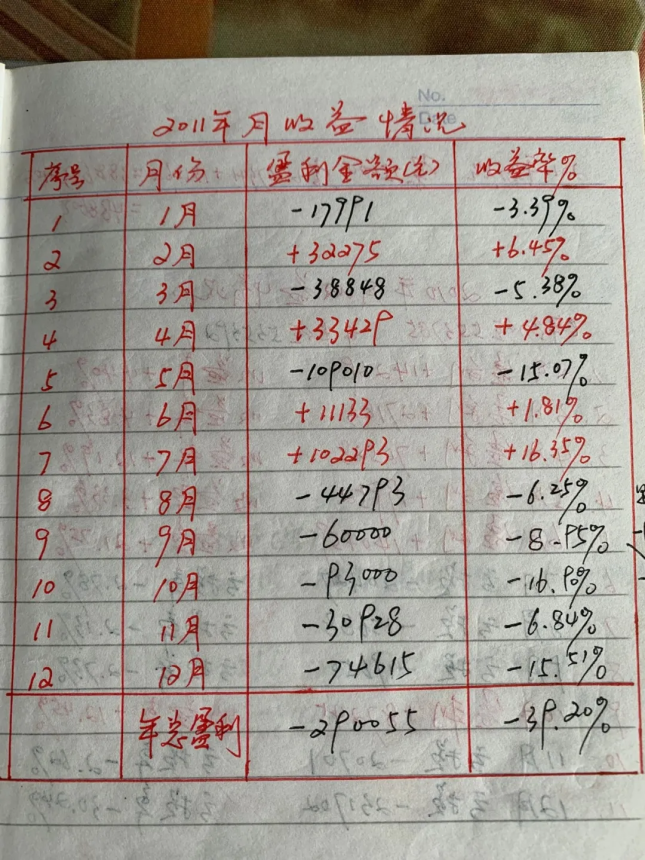 No.
Date
2011年月收益情况
序号 月份 盈利金额(元) 收益率%
1 1月 -17991 -3.39%
2 2月 +32275 +6.45%
3 3月 -38848 -5.38%
4 4月 +33429 +4.84%
5 5月 -109010 -15.07%
6 6月 +11133 +1.81%
7 7月 +102293 +16.35%
8 8月 -44793 -6.25%
9 9月 -60000 -8.95%
10 10月 -93000 -16.90%
11 11月 -30928 -6.84%
12 12月 -74615 -15.51%
年总盈利 -290055 -39.20%